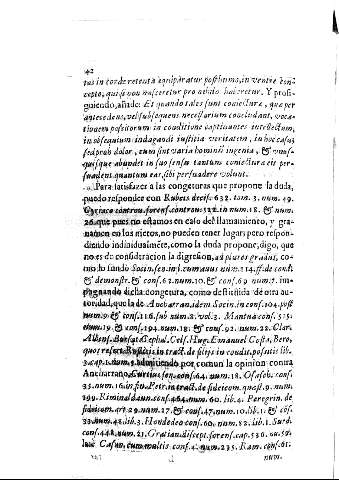 42
tus in corde retenta equiparatur posthumo, in ventre con-
cepto, qui si non nasceretur pro nihilo haberetur. Y prosi-
guiendo, añade: Et quando tales sunt coniecturæ, quæ per
antecedens, vel subsequens necessarium concludant, voca-
tivum positorum in conditione captivantes intellectum,
in obsequium indagandi iustitia veritatem, in hoc casu
sed proh dolor, cum sint varia hominis ingenia, & unus-
quisque abundet in suo sensu tantum coniecturæ eis per-
suadent quantum eæ, sibi persuadere volunt.
Para satisfacer a las congeturas que propone la duda,
puedo responder con Rubeus decis. 632. tom. 3. num. 49.
Cyriaco controu. forens. controu. 322. in num. 18. & num.
26. que pues no estamos en caso del llamamiento, y gra-
namen en los nietos, no pueden tener lugar; pero respon-
diendo individualmẽte, como la duda propone, digo, que
no es de consideracion la digresion, ad plures gradus, co-
mo lo fundo Socin. sen. in l. cum auus num. 214. ff. de condi.
& demonstr. & conf. 62. num. 10. & conf. 69 num. 7. im-
pugnando dicha congetura, como destituida de otra au-
toridad, que la de Ancharran. idem Socin. in conf. 104. post
num. 9. & conf. 116. sub num. 2. vol. 3. Mantua conf. 375.
num. 19. & conf. 194. num. 18. & conf. 92. num. 22. Clar.
Cephal. Cels. Hug. Emanuel Costa, Bero,
quos refert in tract. de sitijs in condit. positis lib.
3. cap. 1. num. admitiendo por comun la opinion contra
Ancharrano, Curtius sen. conf. 64. num. 18. Casar. conf.
35. num. 16. in fin. Petr. in tract. de fideicom. quæst. 9. num.
199. Riminald. iun. conf. 464. num. 60. lib. 4. Peregrin. de
fideicom. art. 29. num. 27. & conf. 47. num. 10. lib. 1. & cõs.
23. num. 42. lib. 3. Hondedeo conf. 60. num. 82. lib. 1. Surd.
conf. 448. num. 21. Gratian. discept. forens. cap. 536.
Casan. cum multis conf. 4. num. 235. Ram. conf. 61.
num.